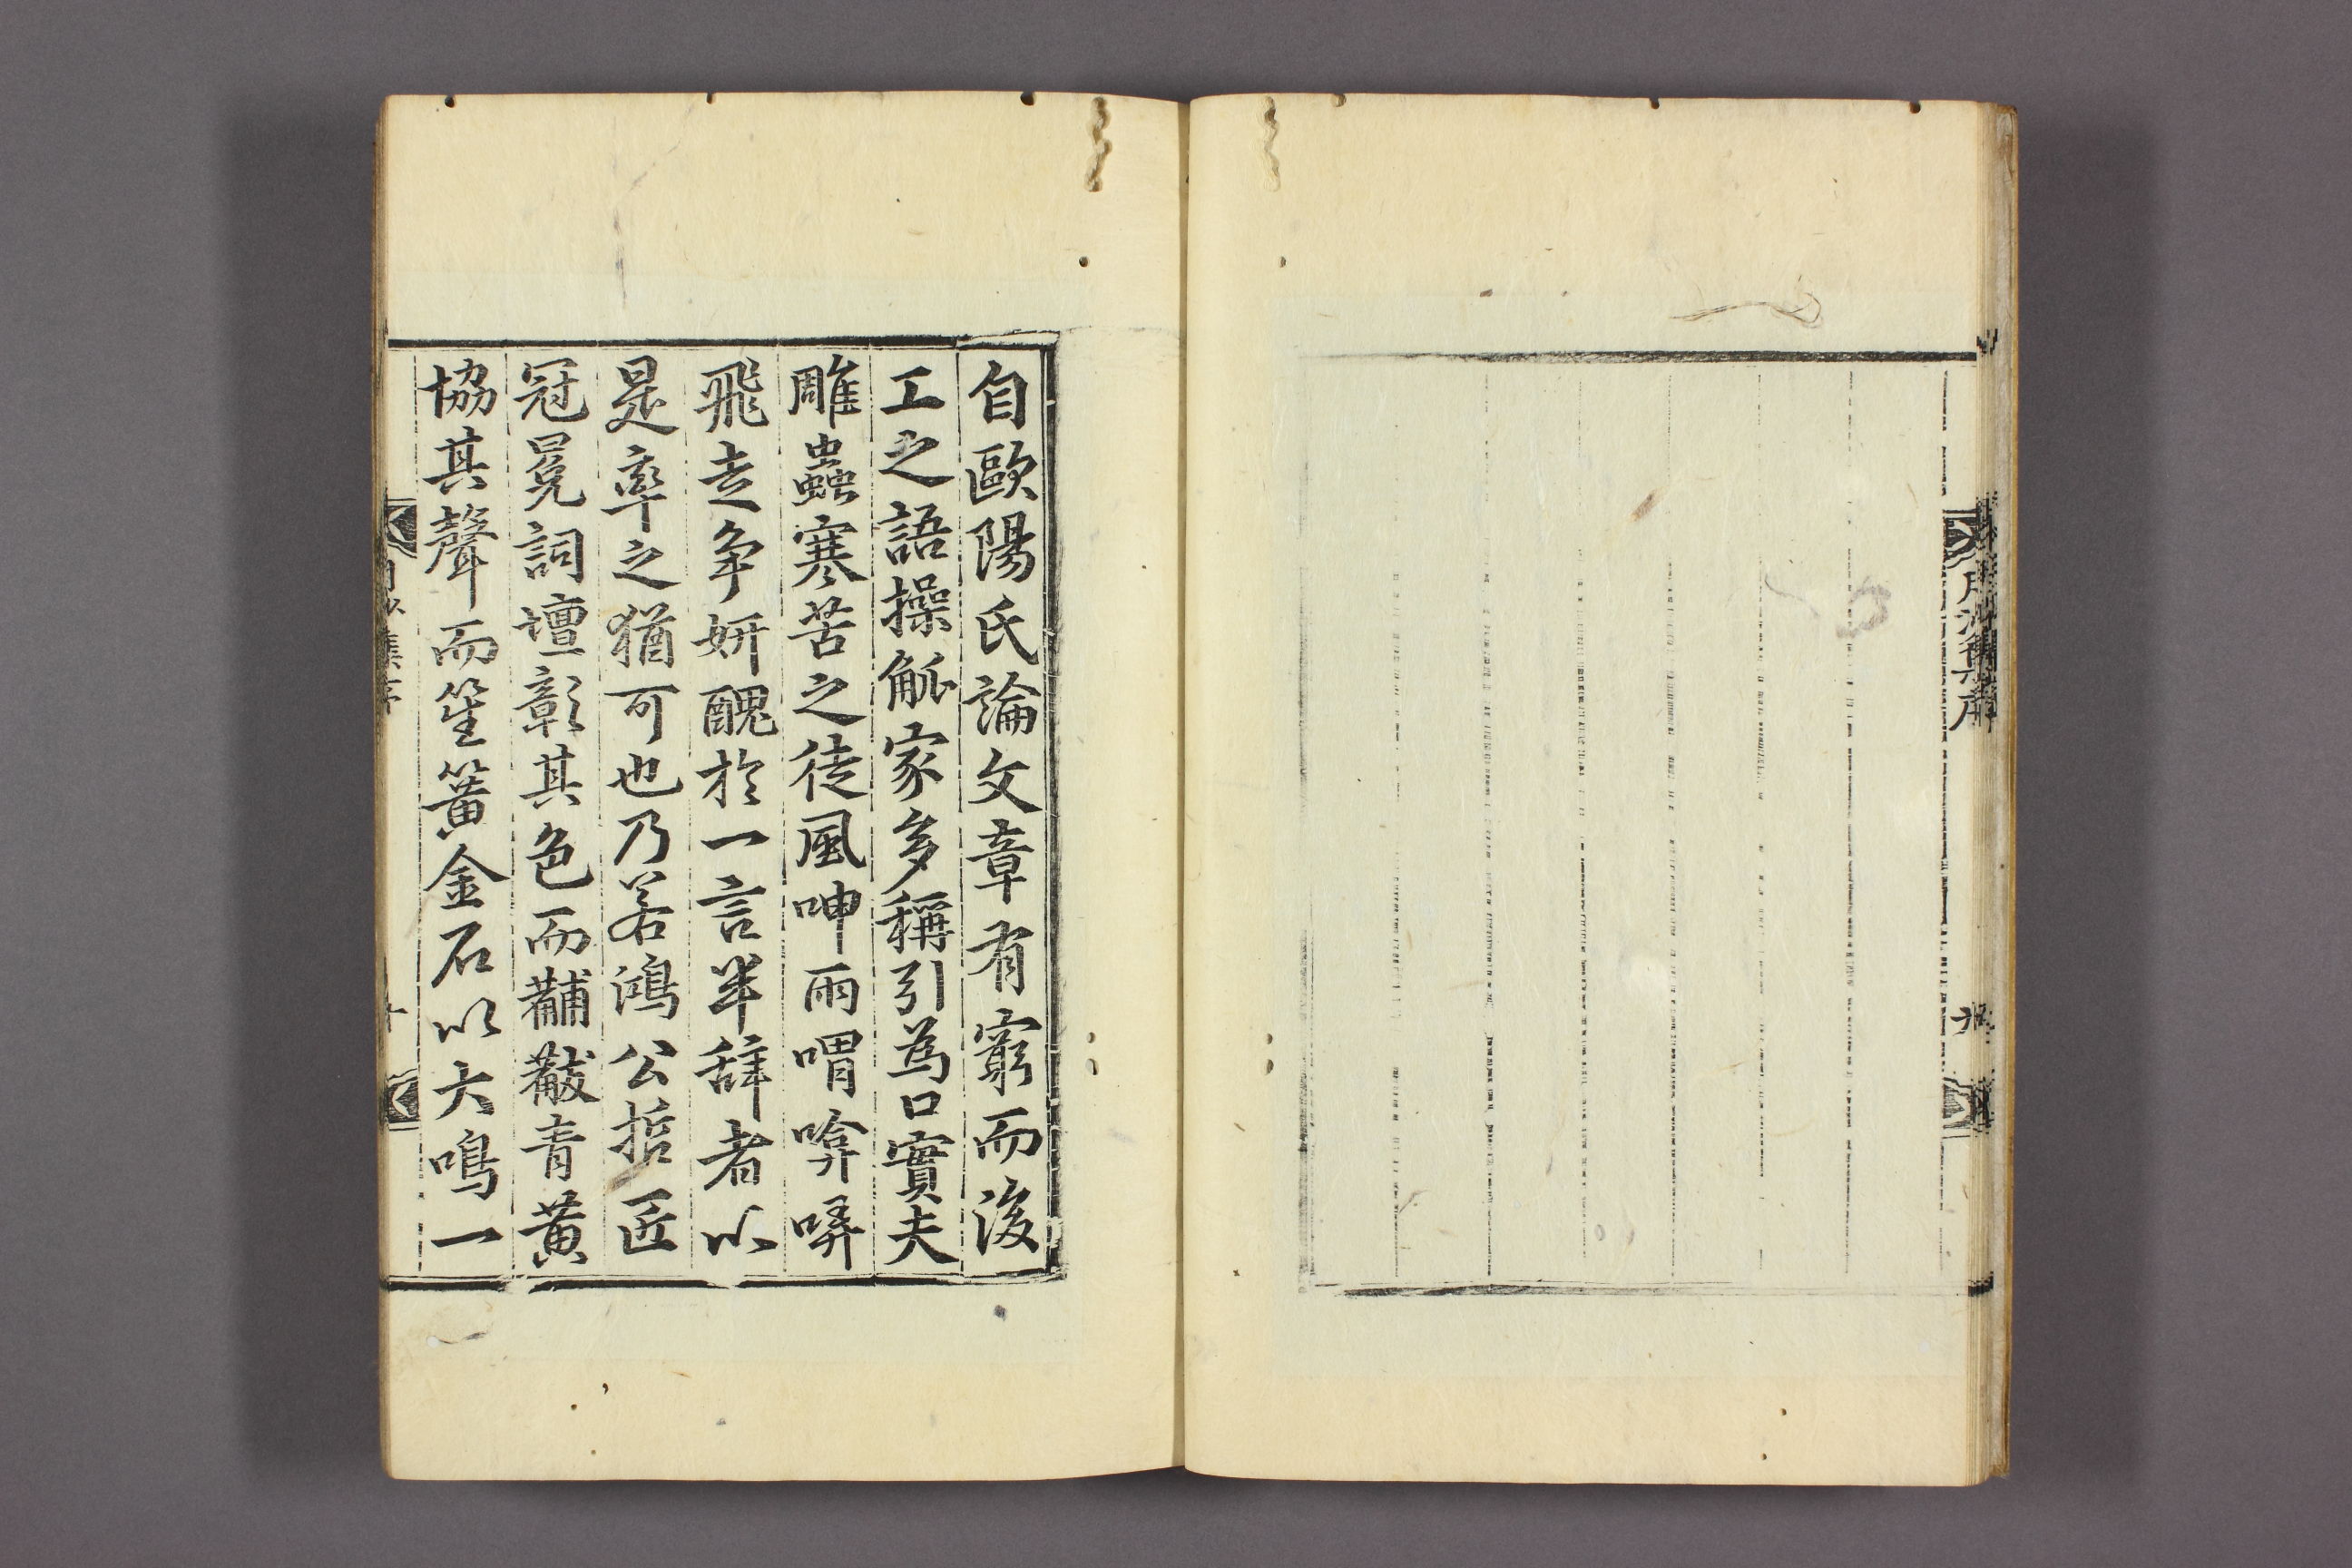 自歐陽氏論文章有窮而後
工之語操觚家多稱引為口實夫
雕蟲寒苦之徒風呻雨喟喑哢
飛走爭妍醜於一言半辭者以
是率之猶可也乃若鴻公哲匠
冠冕詞壇彰其色而黼黻青黃
協其聲而笙簧金石以大鳴一